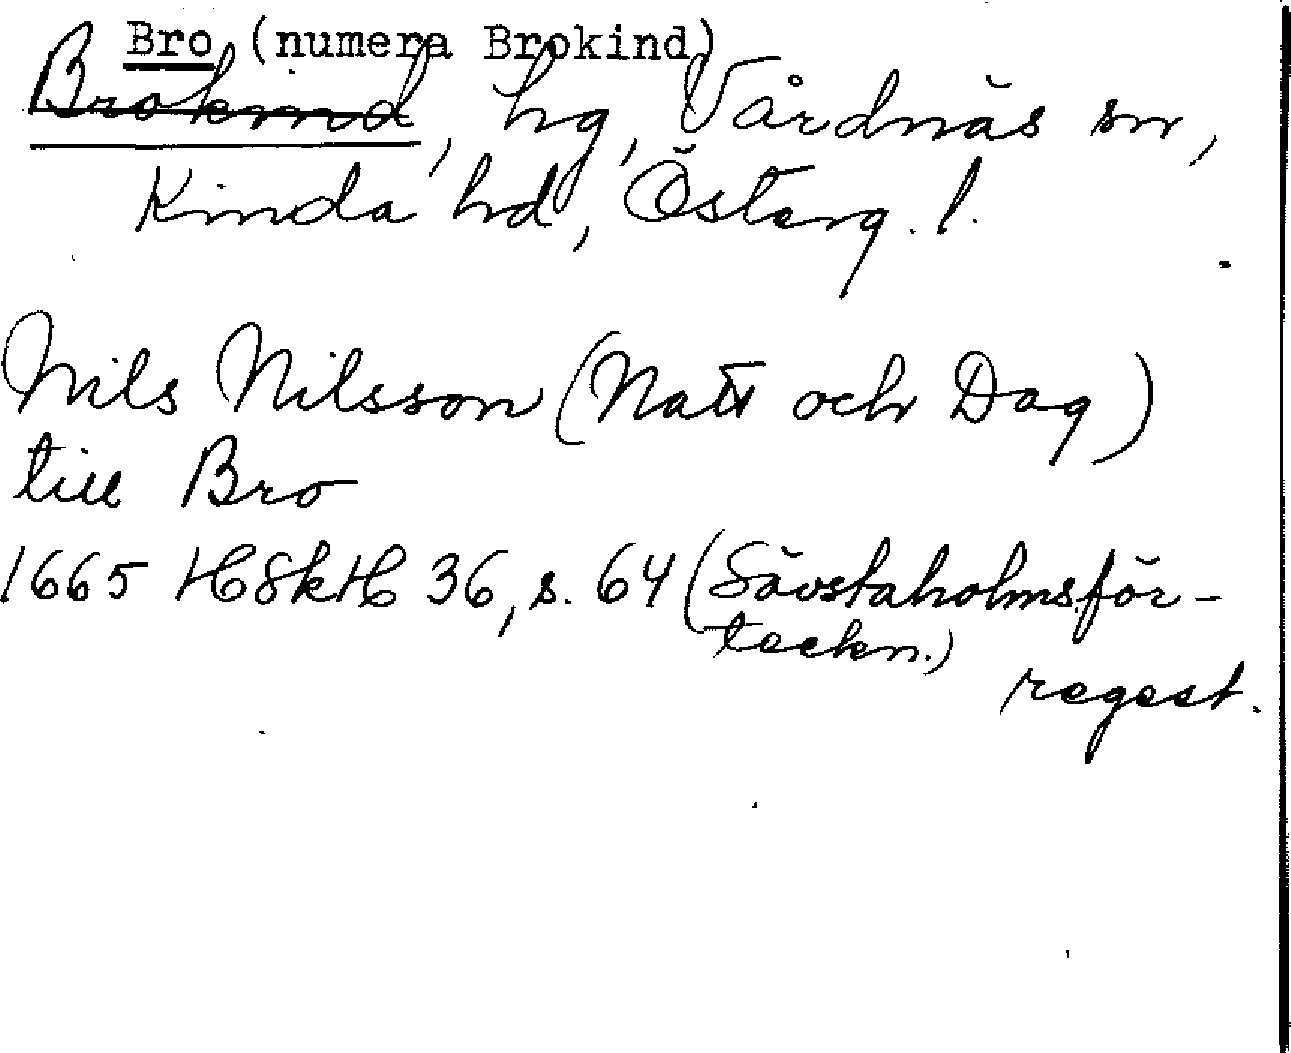 Bro (numera Brokind)
Brokind, hg, Vårdnäs sn,
Kinda hd, Österg. l.
Nils Nilsson (Natt och Dag)
till Bro
1665 HSkH 36, s. 64 (Sävstaholmsför-
teckn.)
regest.